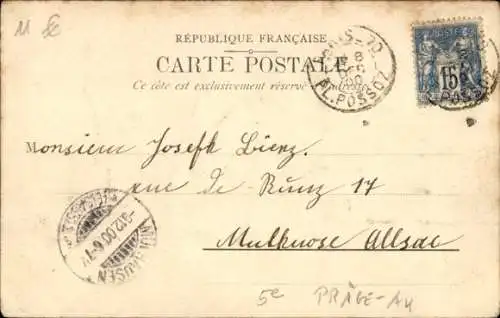 M
RÉPUBLIQUE FRANÇAISE
CARTE POSTALE
Ce côté est exclusivement réservé à l'adresse
PARIS - 70
8
DEC
00
PL. POSSOZ
15
Monsieur Josefh Bierz.
rue de Runz 17
Mulhuose Allsac
MÜLHAUSEN
-9.12.00.6-7V
5e PRÄGE-AK